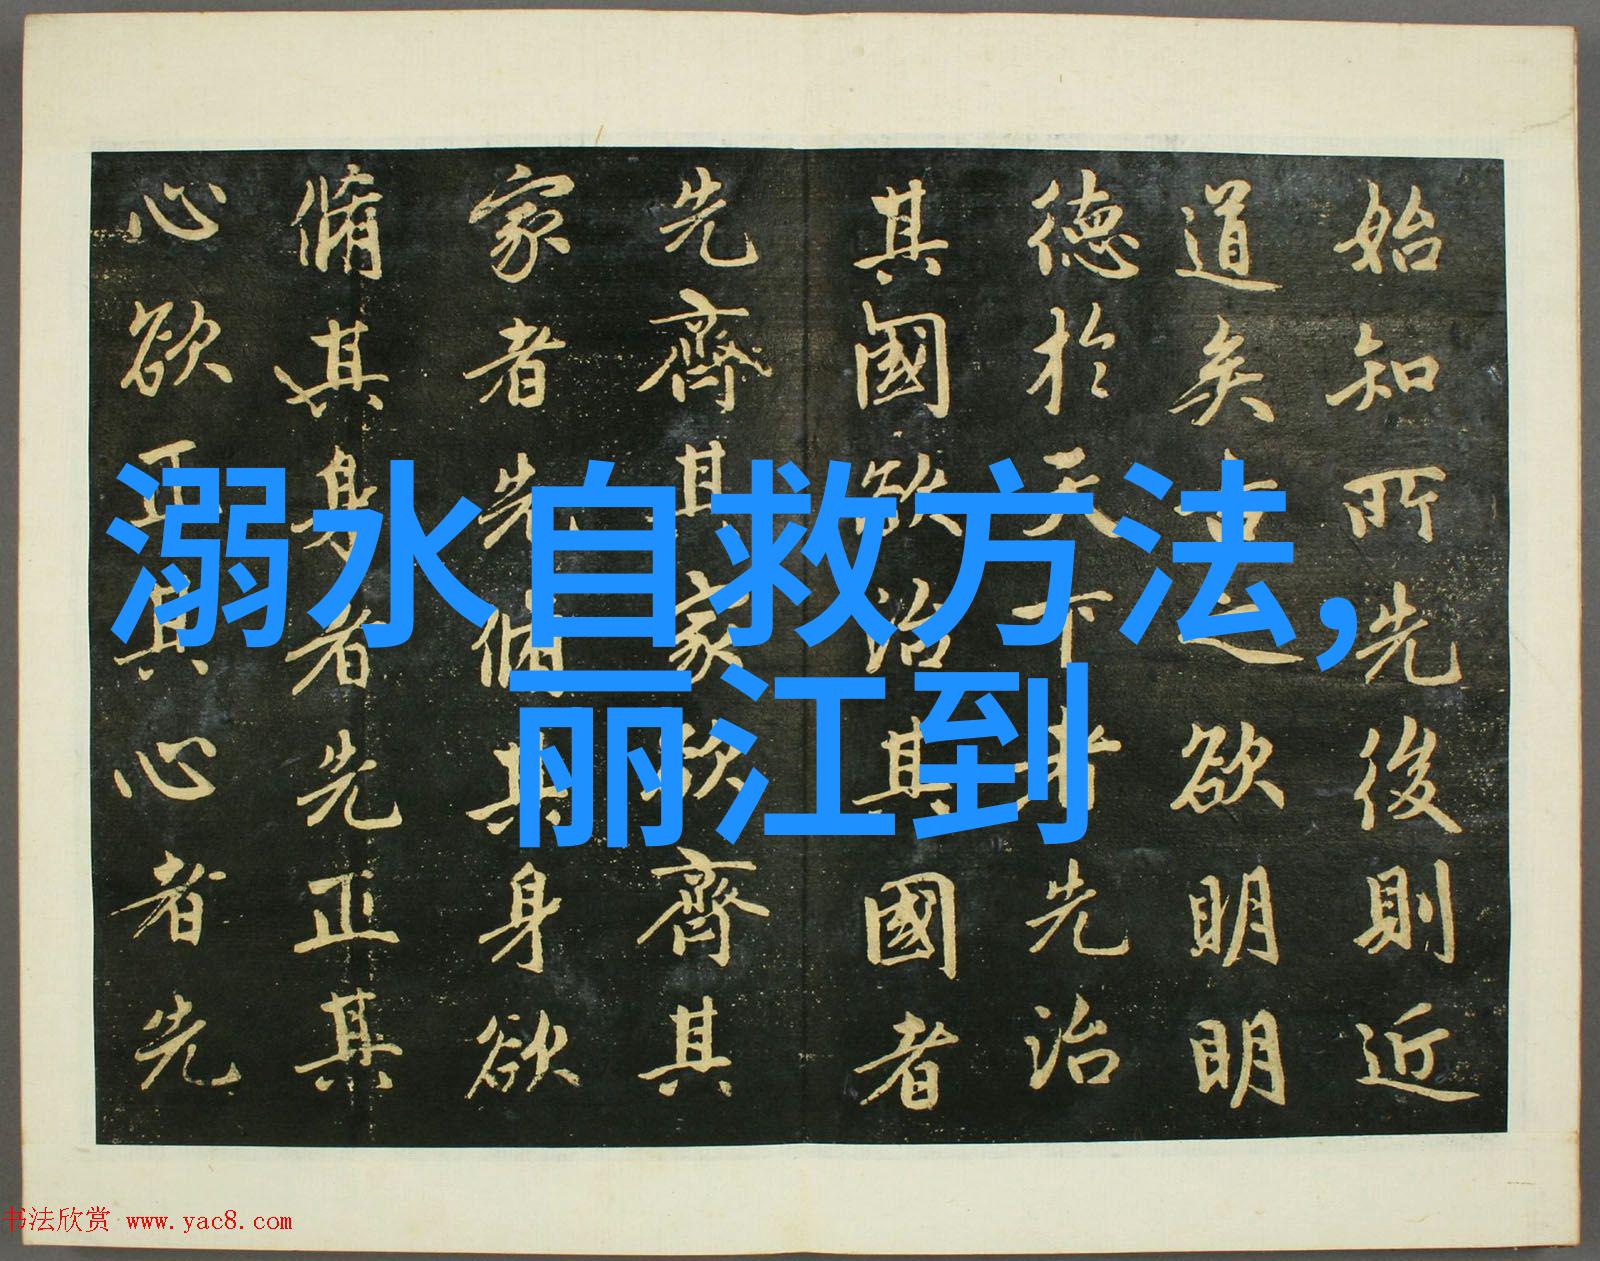 始知所先後則近
道矣古之欲明明
德於天下者先治
其國欲治其國者
先齊其家欲齊其
家者先脩其身欲
脩其身者先正其
心欲正其心者先
溺水自救方法,
丽江到
书法欣赏 www.yac8.com